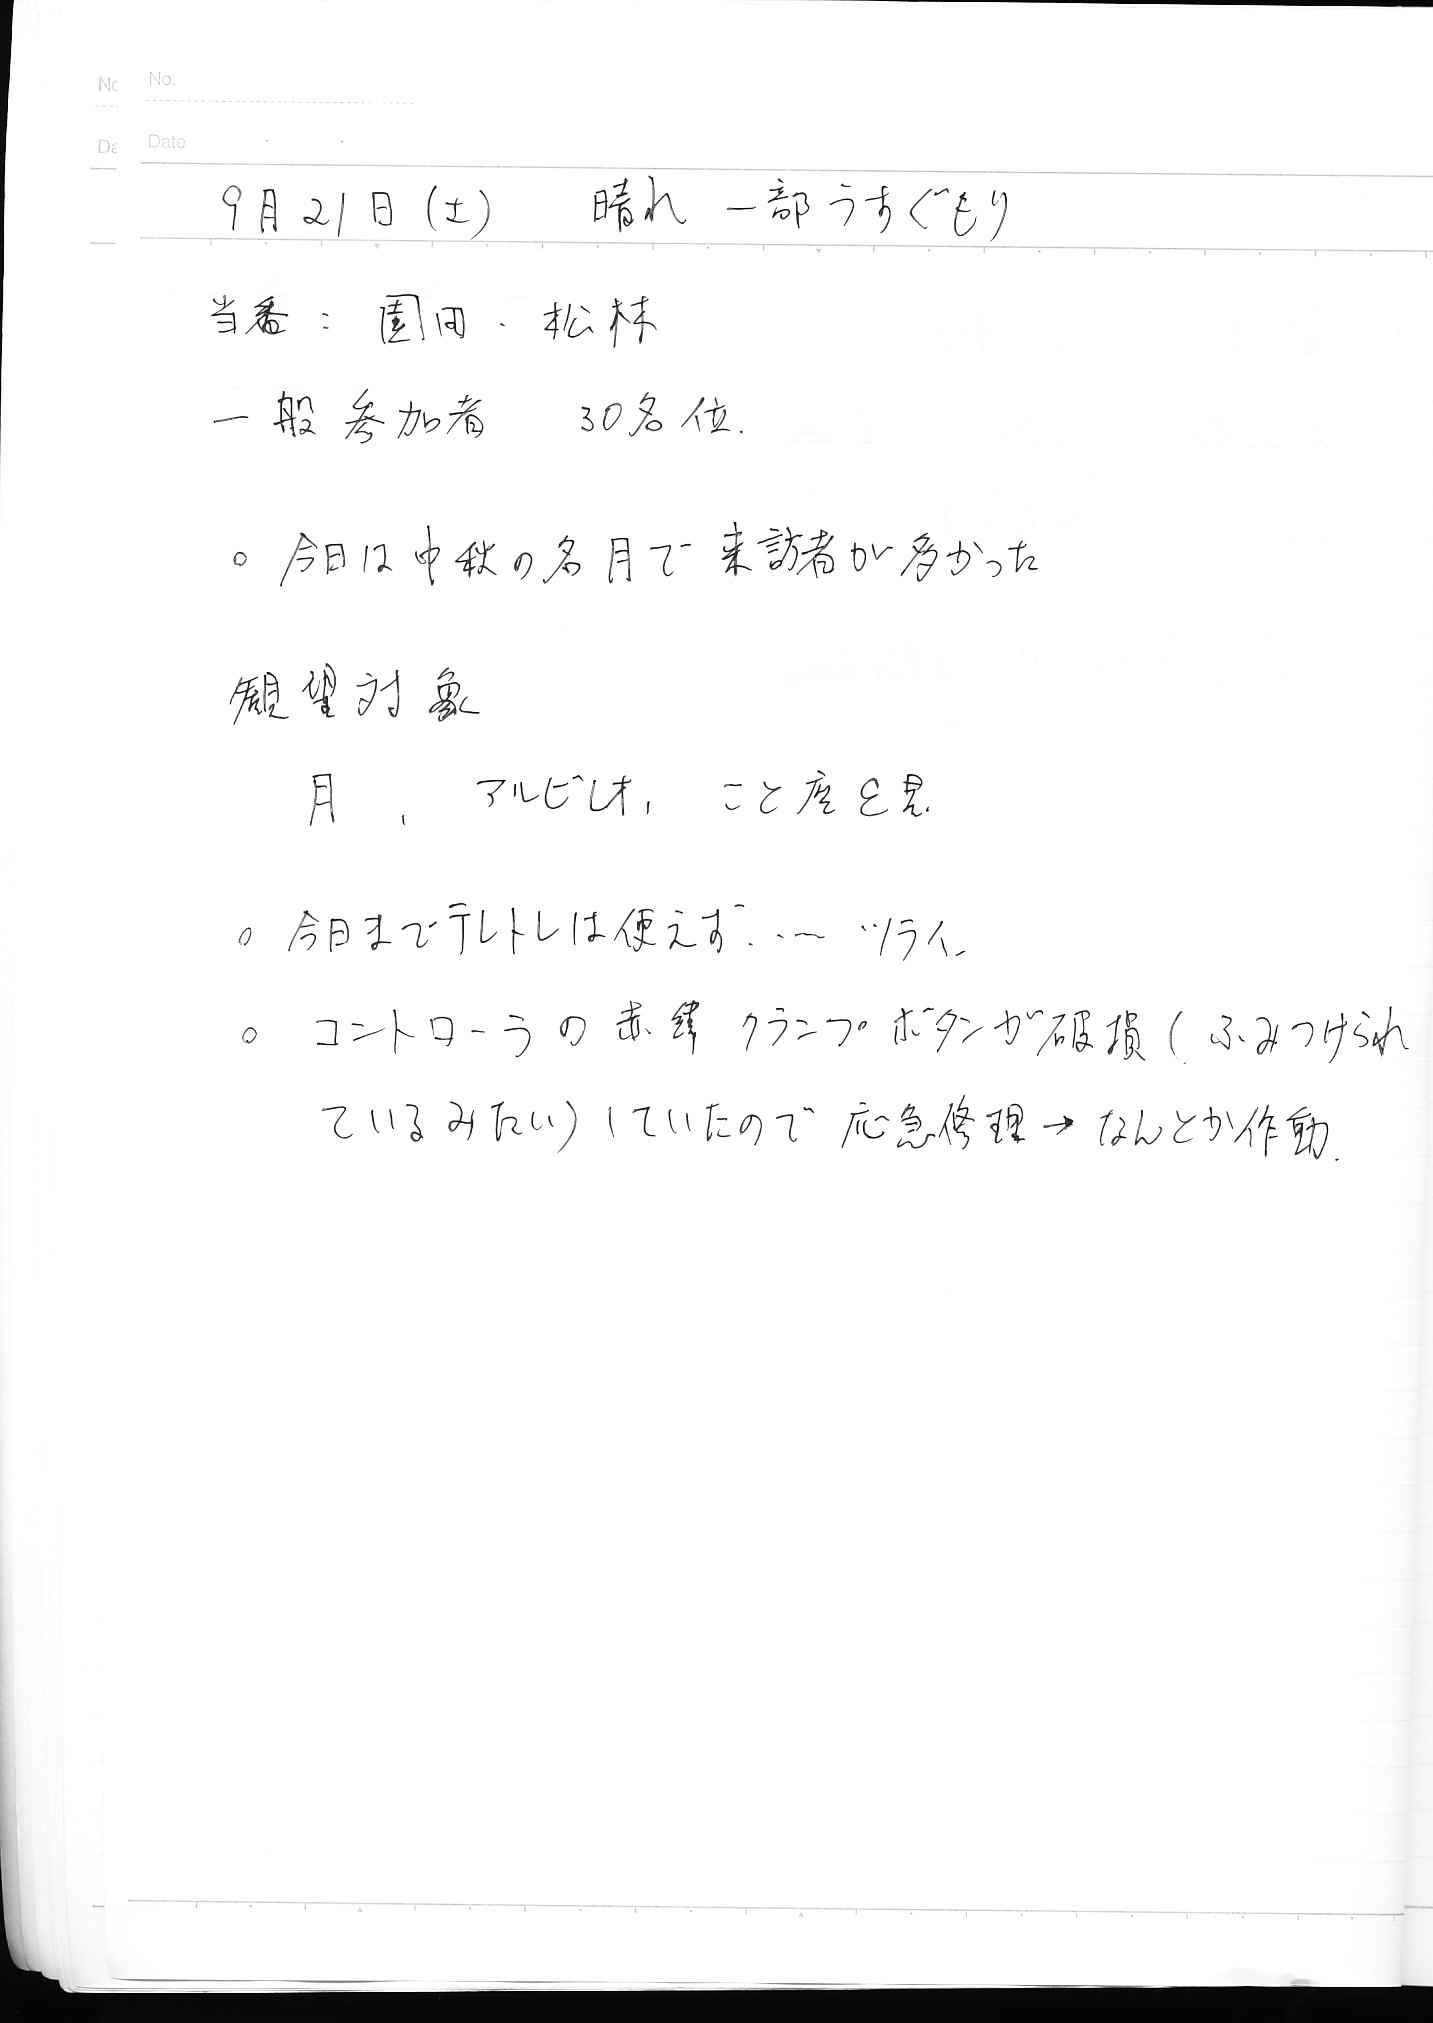 No.
No.
Date
9月21日(土) 晴れ 一部うすぐもり
当番: 園田・松林
一般参加者 30名位.
○ 今日は中秋の名月で来訪者が多かった
観望対象
月, アルビレオ, こと座ε見.
○ 今日までテレトレは使えず..～ ツライ.
○ コントローラの赤緯クランプボタンが破損(ふみつけられ
ているみたい)していたので応急修理→なんとか作動.